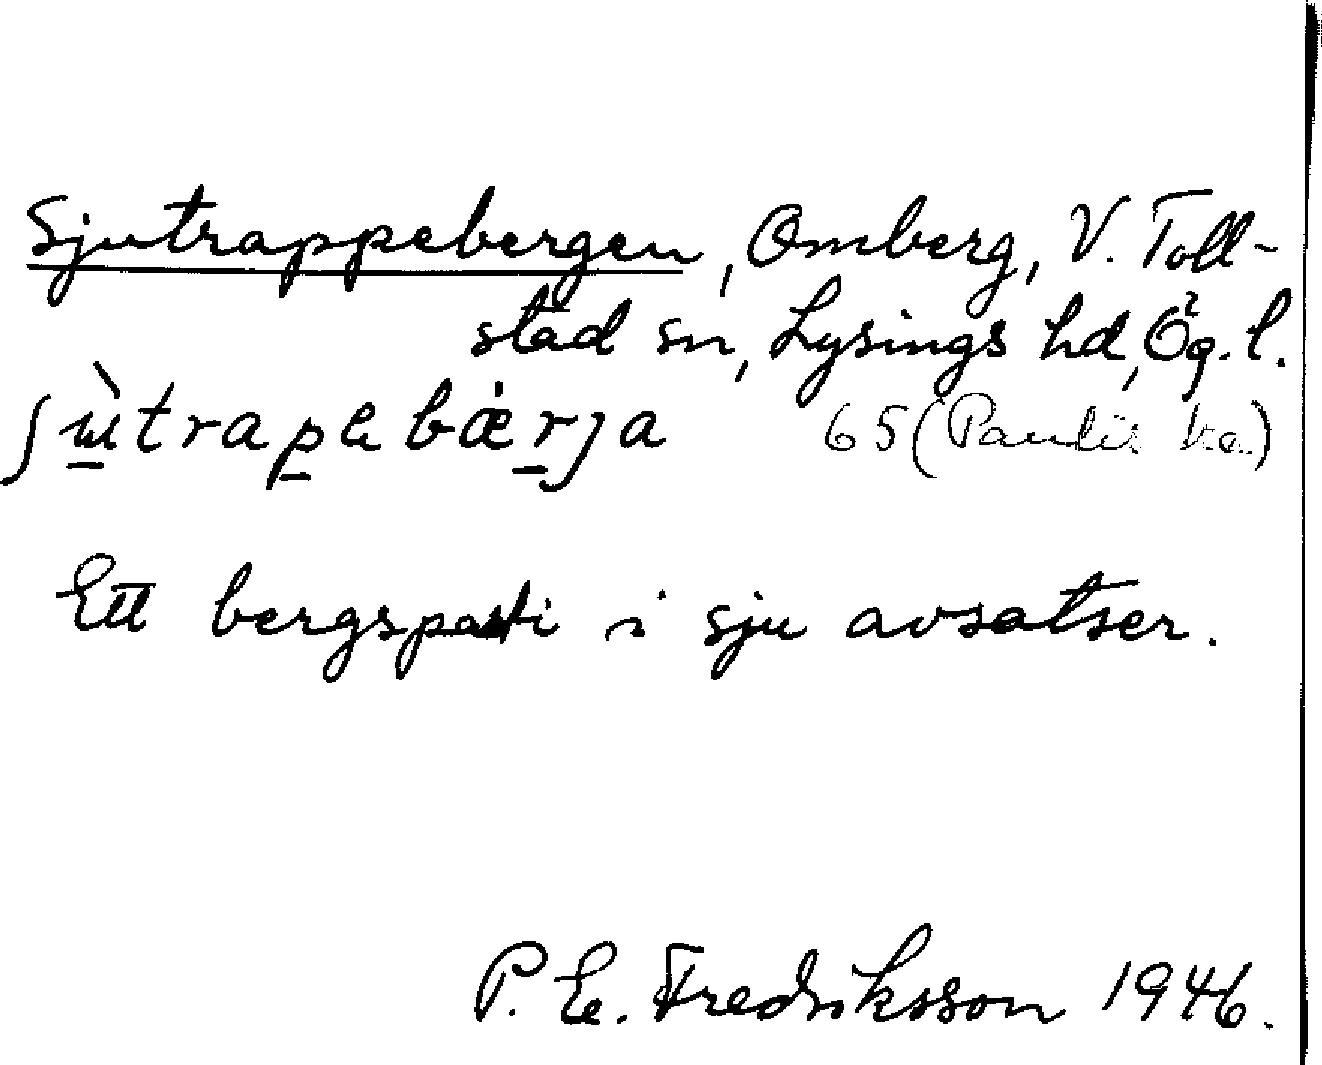 Sjutrappebergen, Omberg, V. Toll-
stad sn, Lysings hd, Ög. l.
ʃɯ̀trapebæ̀rja 65 (
Ett bergsparti i sju avsatser.
P. E. Fredriksson 1946.